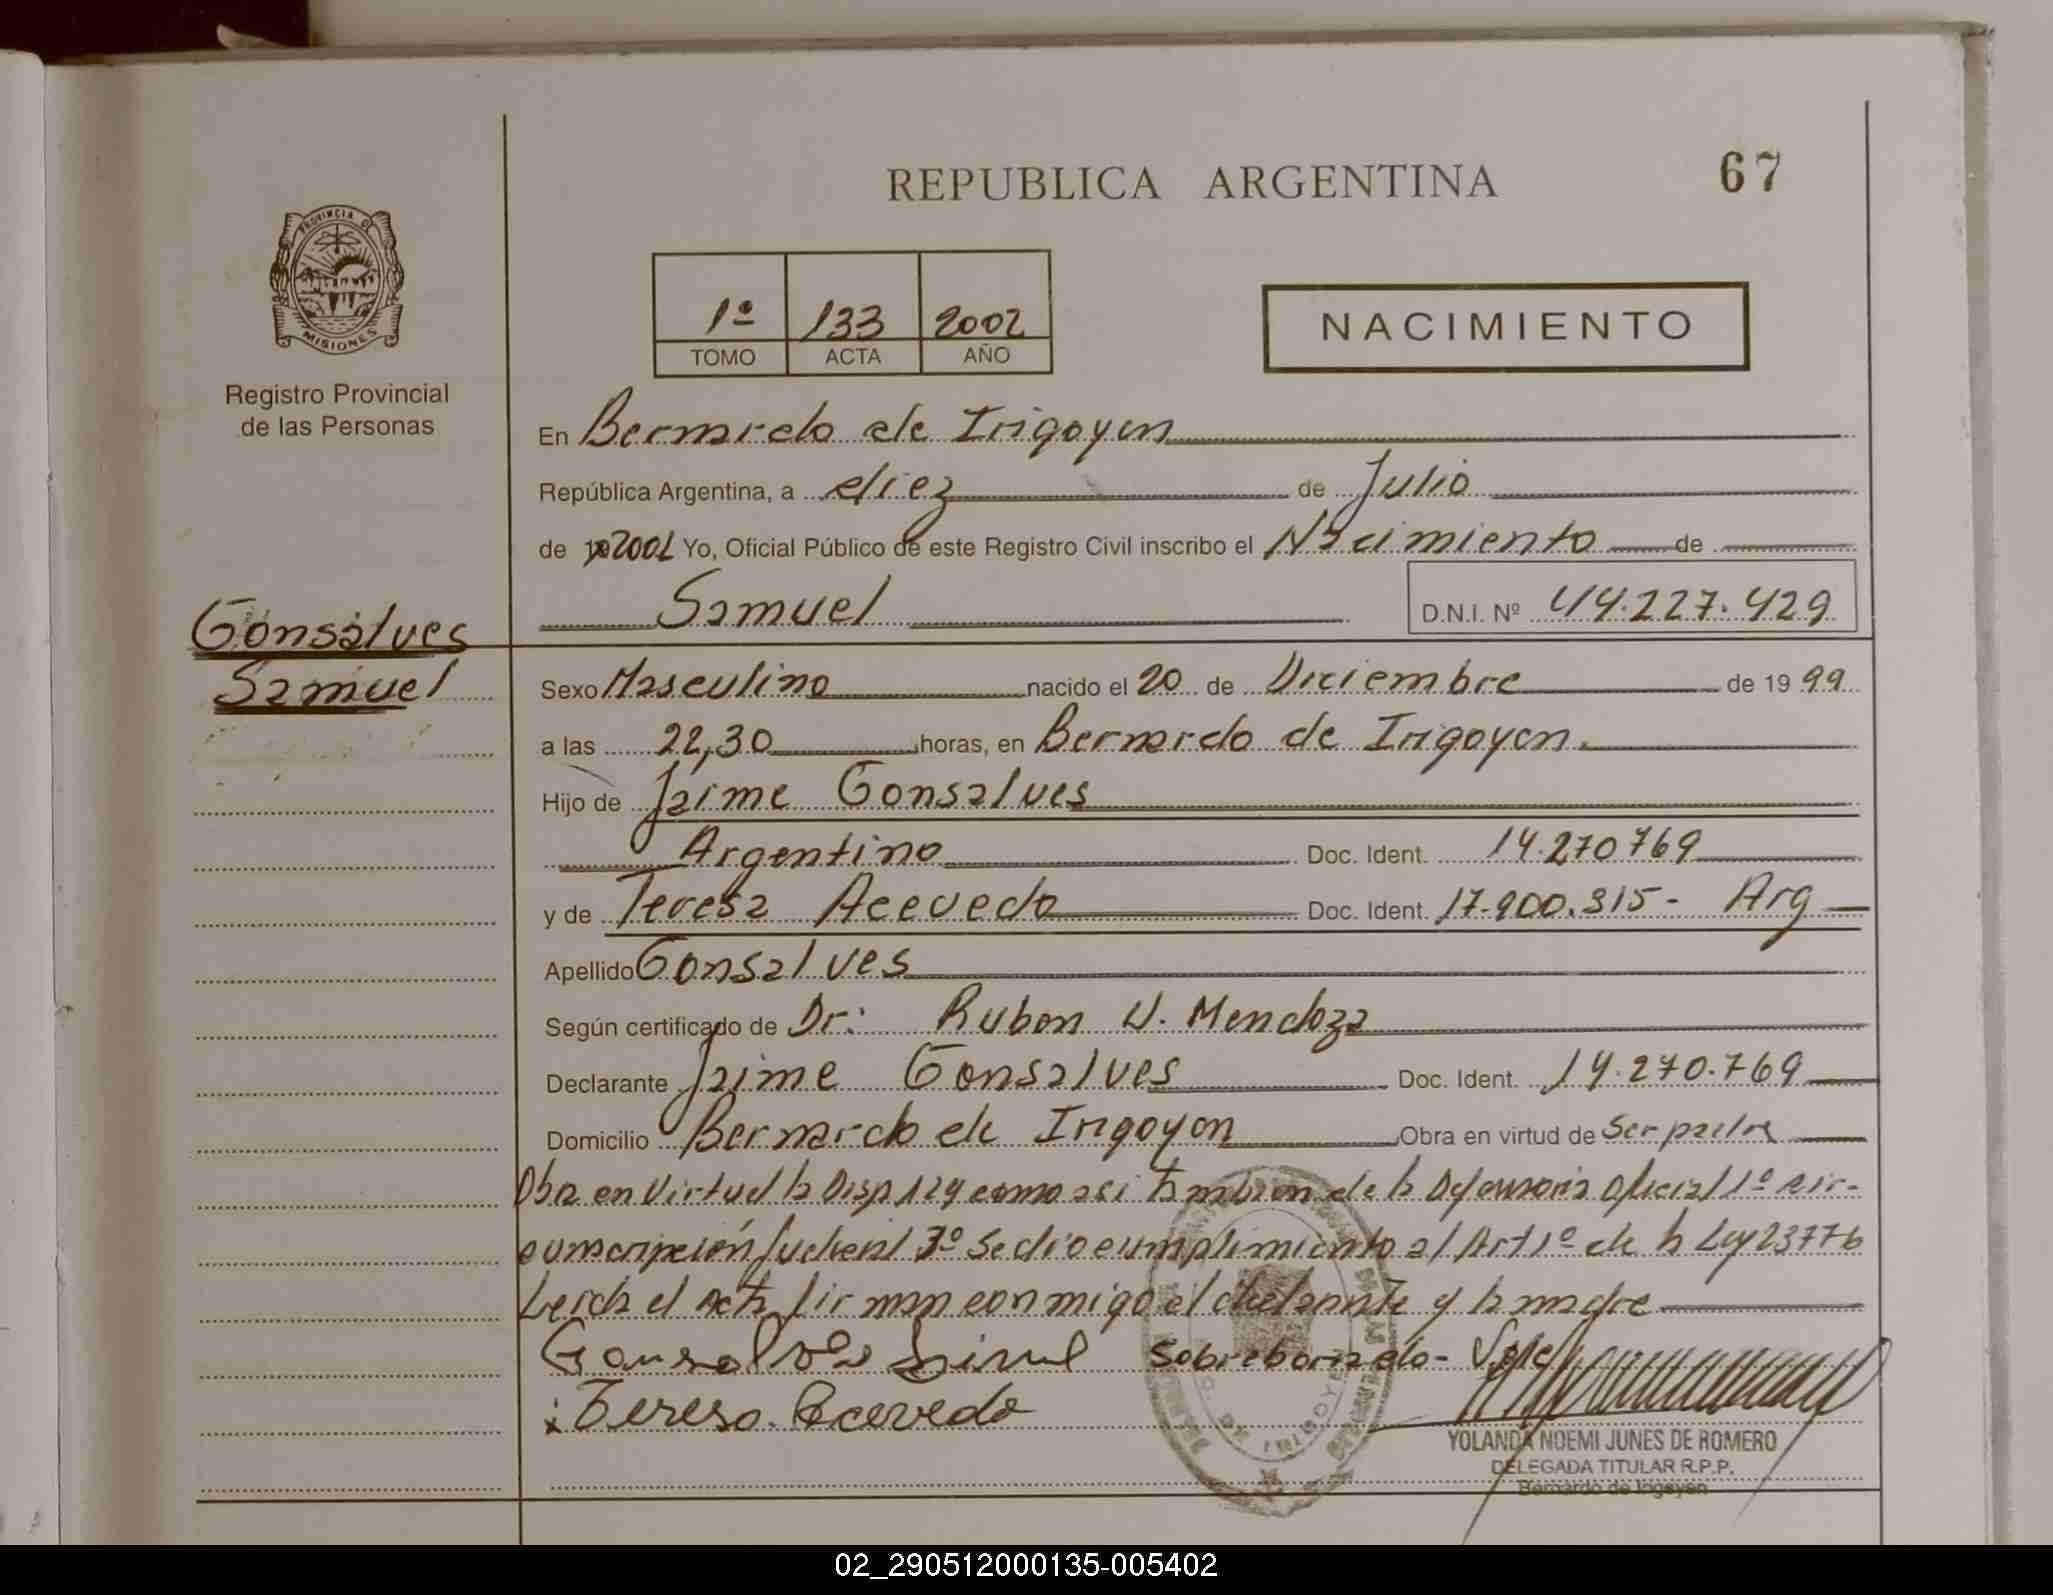 REPUBLICA ARGENTINA
67
PROVINCIA D
MISIONES
Registro Provincial
de las Personas
1º 133 2002
TOMO ACTA AÑO
NACIMIENTO
En Bernardo de Irigoyen
República Argentina, a diez de Julio
de 2002 Yo, Oficial Público de este Registro Civil inscribo el Nacimiento de
Samuel D.N.I. Nº 44.227.429
Gonsalves
Samuel
Sexo Masculino nacido el 20 de Diciembre de 1999
a las 22,30 horas, en Bernardo de Irigoyen.
Hijo de Jaime Gonsalves
Argentino Doc. Ident. 14.270769
y de Teresa Acevedo Doc. Ident. 17.900.315- Arg
Apellido Gonsalves
Según certificado de Dr: Ruben W. Mendoza
Declarante Jaime Gonsalves Doc. Ident. 14.270.769
Domicilio Bernardo de Irigoyen Obra en virtud de Ser padre
Obra en Virtud la Disp 129 como asi tambien de la Defensoria Oficial 1º cir-
cunscripción Judicial 3º Se dio cumplimiento al Art 1º de la Ley 23776
Leida el Acta firman conmigo el declarante y la madre
Gonsalves Sobreborrado- Vale
x Teresa Acevedo
YOLANDA NOEMI JUNES DE ROMERO
DELEGADA TITULAR R.P.P.
Bernardo de Irigoyen
02_290512000135-005402